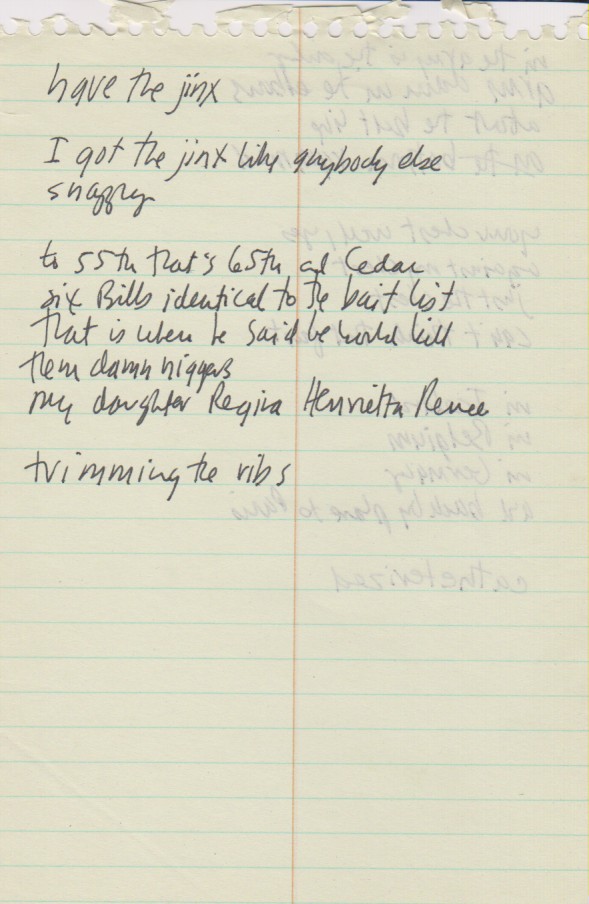 have the jinx
I got the jinx like anybody else
snappy
to 55th that's 65th and Cedar
six Bills identical to the bait list
That is when he said he would kill
them damn niggers
my daughter Regina Henrietta Renee
trimming the ribs